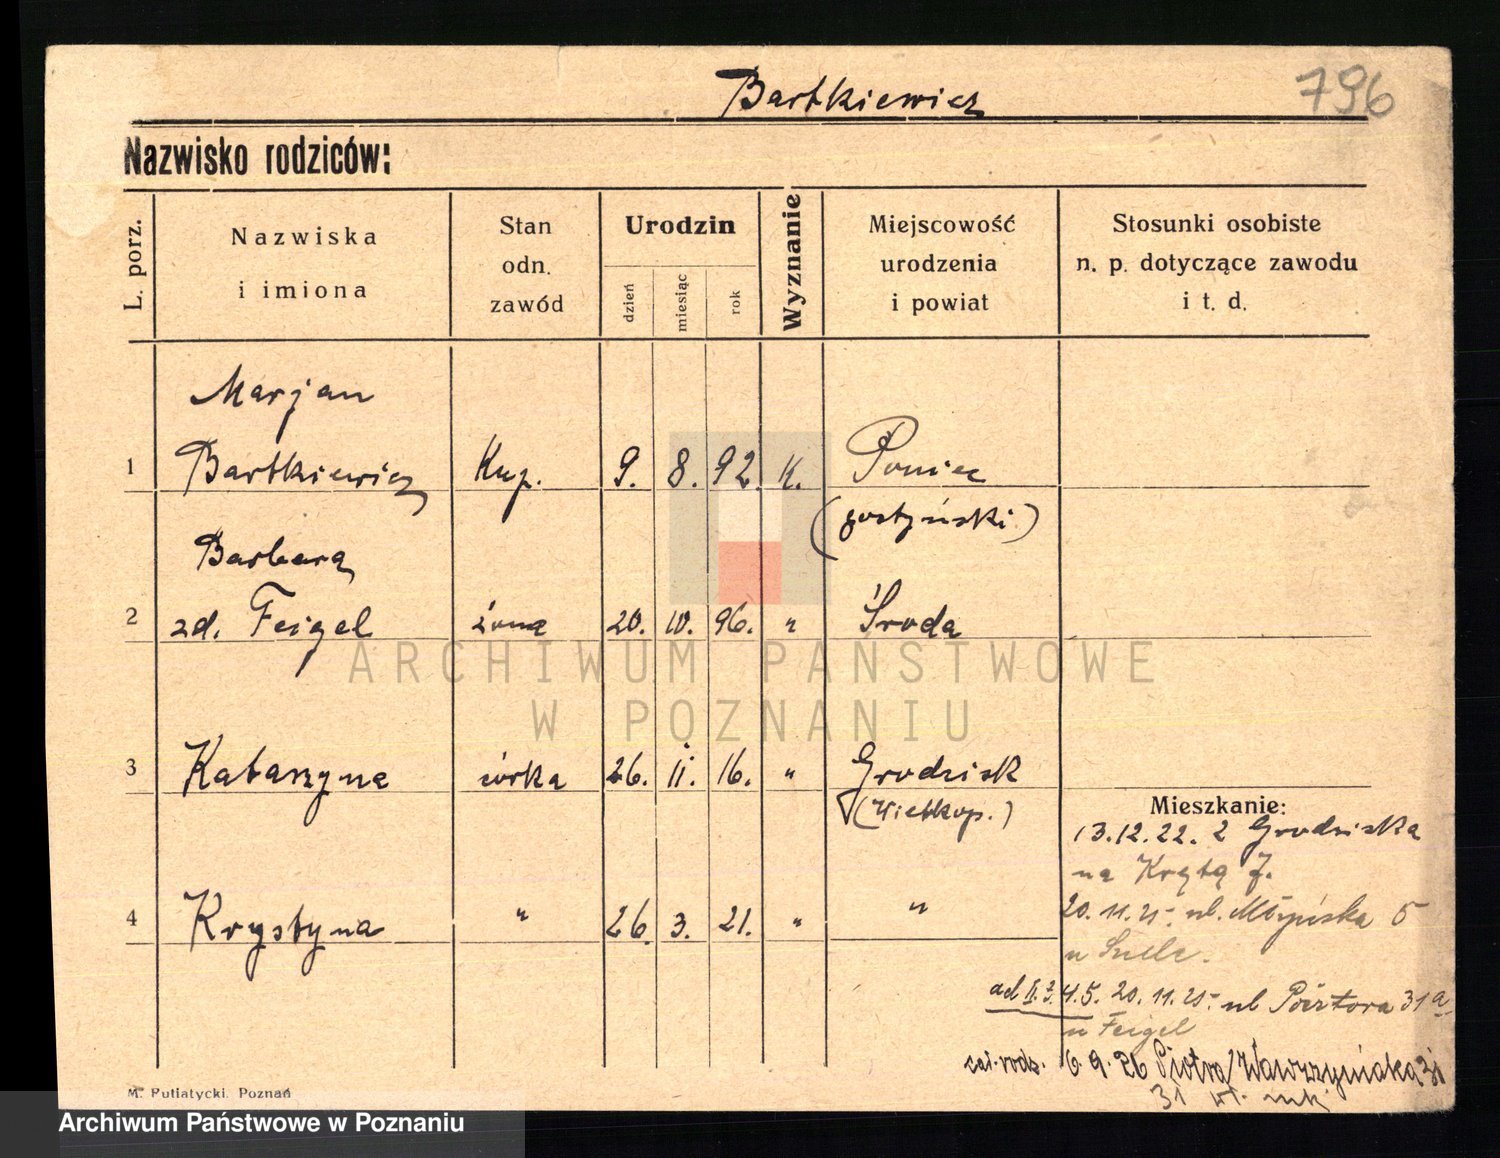 Bartkiewicz
796
Nazwisko rodziców:
L. porz.
Nazwiska
i imiona
Stan
odn.
zawód
Urodzin
dzień
miesiąc
rok
Wyznanie
Miejscowość
urodzenia
i powiat
Stosunki osobiste
n. p. dotyczące zawodu
i t. d.
Marjan
1 Bartkiewicz Kup. 9. 8. 92. K. Poniec
(gostyński)
Barbara
2 zd. Feigel żona 20. 10. 96. " Środa
3 Katarzyna córka 26. II. 16. " Grodzisk
(Wielkop.)
Mieszkanie:
13.12.22. z Grodziska
na Krętą 7.
4 Krystyna " 26. 3. 21. " "
20.11.25. ul. Młyńska 5
u
ad II. 3. 4. 5. 20.11.25. ul 31a
u Feigel
cał. rodz. 6.9.26 Piotra Wawrzyniaka 31
31
M. Putiatycki. Poznań
ARCHIWUM PAŃSTWOWE
W POZNANIU
Archiwum Państwowe w Poznaniu